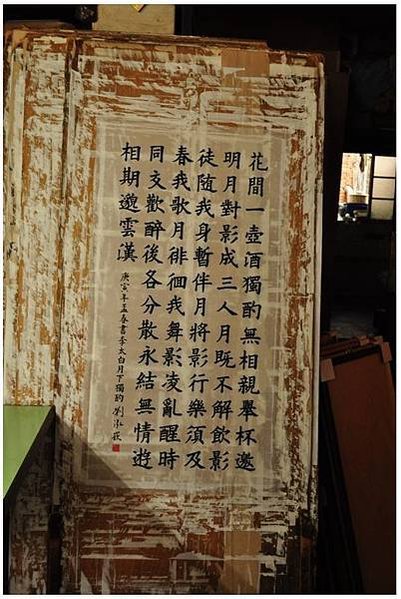 花間一壺酒獨酌無相親舉杯邀
明月對影成三人月既不解飲影
徒隨我身暫伴月將影行樂須及
春我歌月徘徊我舞影凌亂醒時
同交歡醉後各分散永結無情遊
相期邈雲漢
庚寅年孟春書李太白月下獨酌 劉